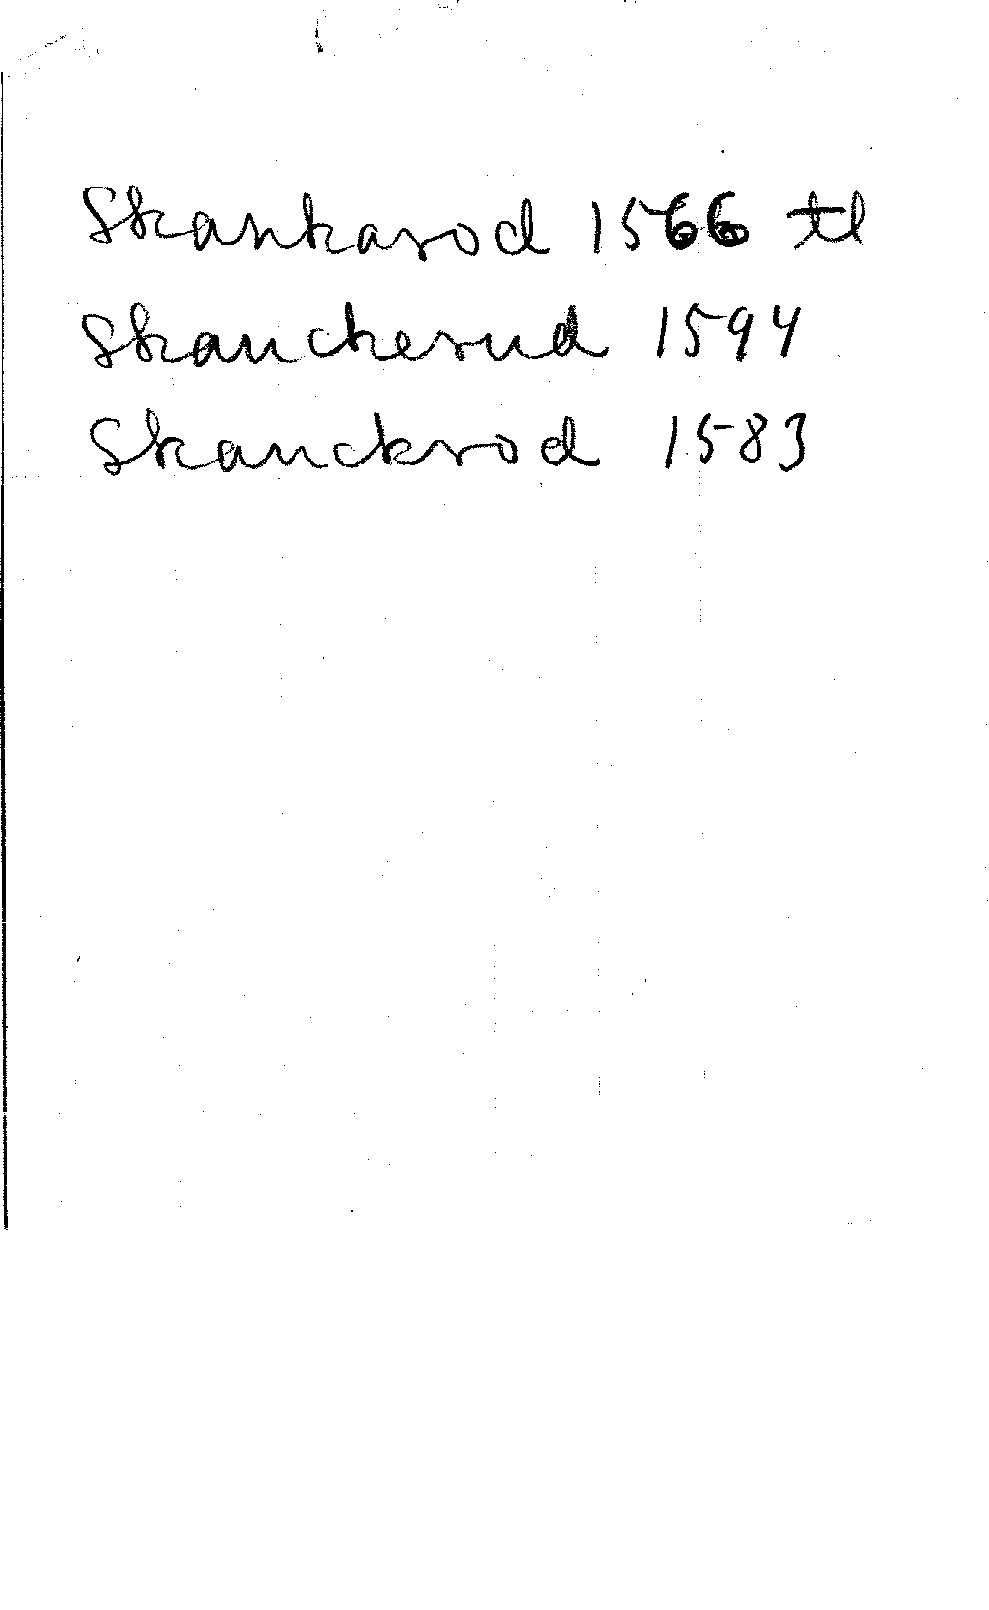 Skankarod 1566 tl
Skanckerud 1594
Skanckrod 1583